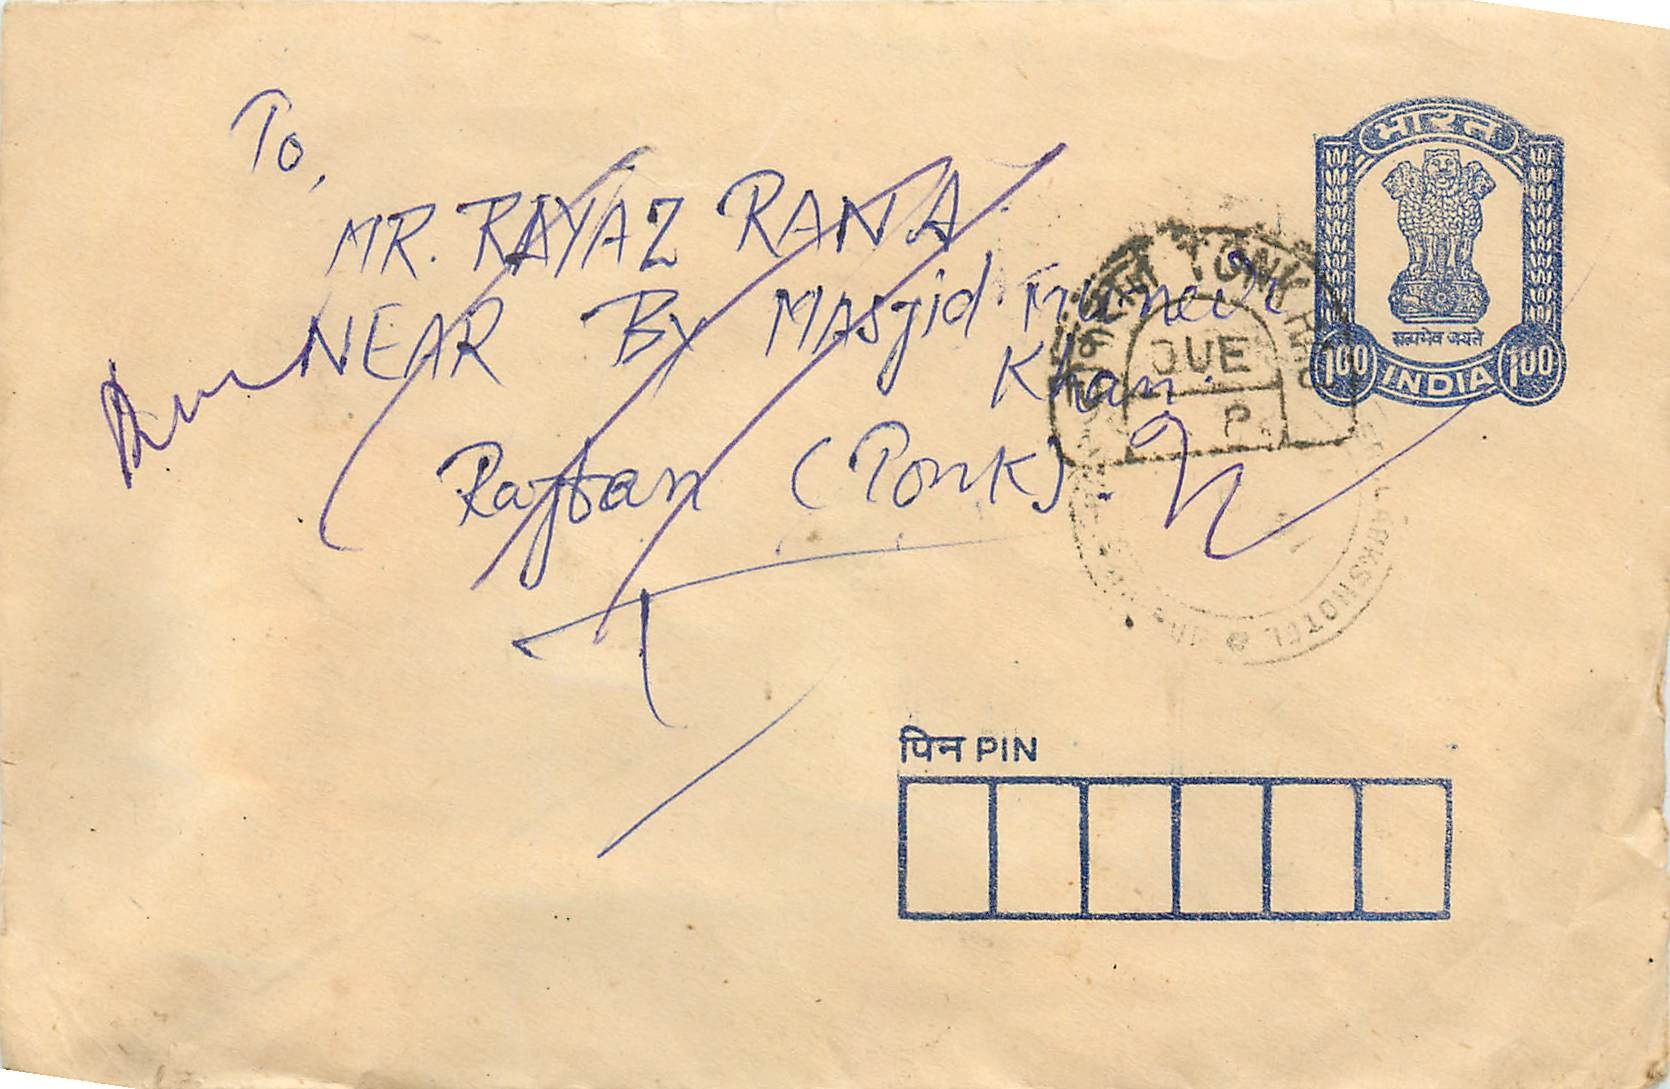 To,
MR. RAYAZ RANA
NEAR BY MASJID Muneer
Khan.
Rajban (Ponk).
भारत
सत्यमेव जयते
100 INDIA 100
TONK
DUE
P.
LAKSHOTEL
पिन PIN